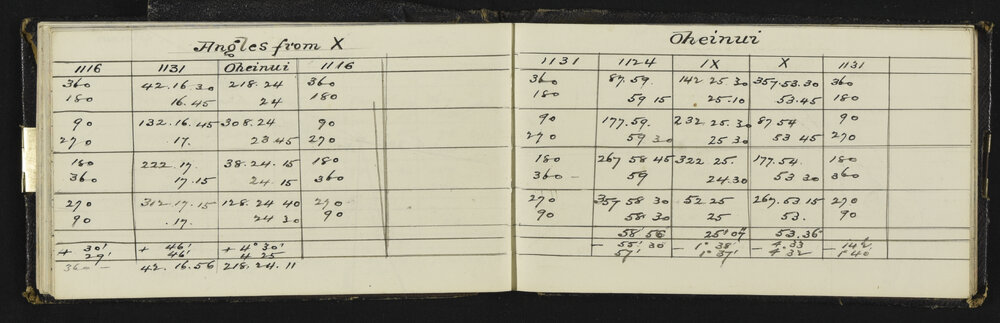 Angles from X
1116 1131 Oheinui 1116
360 42.16.30 218.24 360
180 16.45 24 180
90 132.16.45 308.24 90
270 17. 23 45 270
180 222.17. 38.24.15 180
360 17.15 24.15 360
270 312.17.15 128.24 40 270
90 .17. 24 30 90
+ 30' + 46' + 4° 30'
29' 46' 4 25
360 – 42.16.56 218.24.11
Oheinui
1131 1124 IX X 1131
360 87.59. 142 25 30 357.53.30 360
180 59 15 25.10 53.45 180
90 177.59. 232 25.30 87 54 90
270 59 30 25 30 53 45 270
180 267 58 45 322 25. 177.54. 180
360 – 59 24.30 53 30 360
270 357 58 30 52 25 267.53 15 270
90 58 30 25 53. 90
58 56 25 07 53.36
– 55' 30 – 1° 38' – 4.33
57' 1° 37' 4 32 1° 40